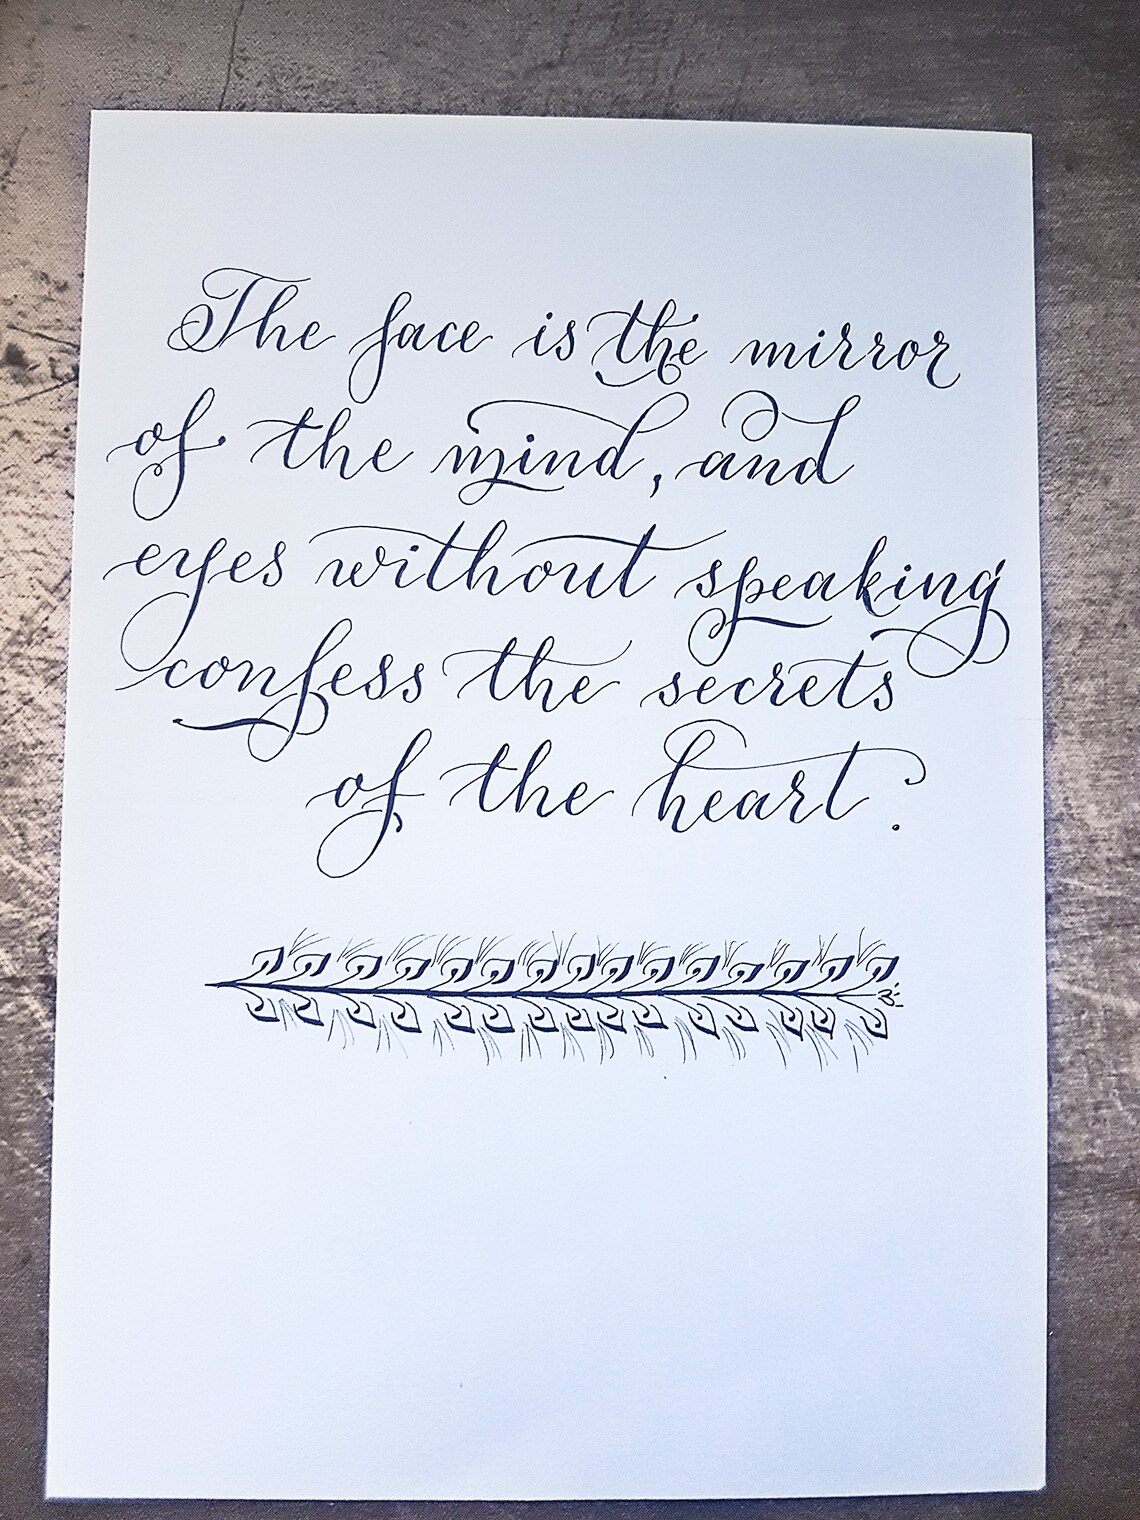 The face is the mirror
of the mind, and
eyes without speaking
confess the secrets
of the heart.